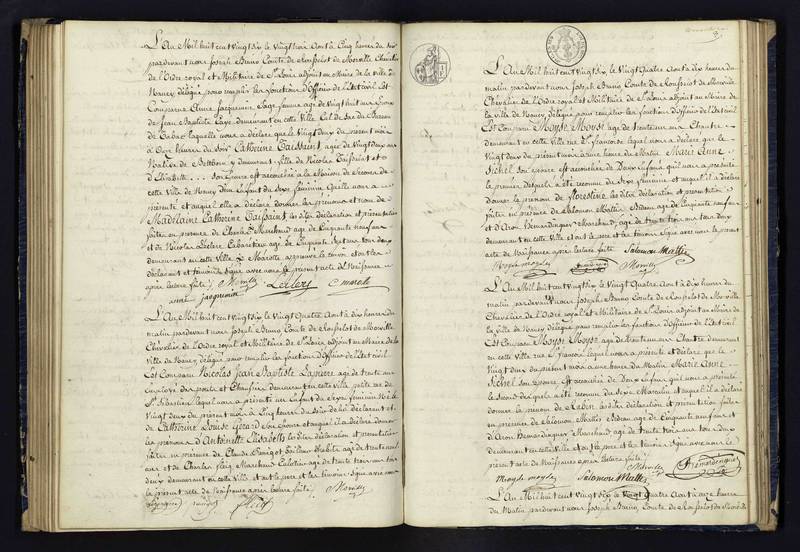 L'An Mil huit cent Vingt Six le Vingt trois Aout à Cinq heures du soir
pardevant nous Joseph Bruno Comte de Rousselot de Morville Chevalier
de l'Ordre royal et Militaire de St Louis adjoint au Maire de la Ville de
Nancy délégué pour remplir les fonctions d'Officier de l'Etat civil Est
Comparue Anne Jacquemin Sage femme agée de Vingt huit ans Epouse
de Jean Baptiste Paye demeurant en cette Ville Cul de Sac du Bureau
de Tabac laquelle nous a déclaré que le Vingt deux du present mois
à Onze heures du Soir Catherine Taissaint agée de Vingt deux ans
Native de Bettborn y demeurant fille de Nicolas Taissaint et
d'Elisabeth . . . Son Epouse est accouchée à la Maison de Secours de
cette Ville de Nancy d'un Enfant du Sexe féminin Quelle nous a
présenté et auquel elle a déclaré donner les prenoms et nom de
Madelaine Catherine Taissaint les dites déclaration et présentation
faites en presence de Charles Marchand agé de Cinquante neuf ans
et de Nicolas Leclerc Cabaretier agé de Cinquante Sept ans tous deux
demeurant en cette Ville
déclarant et témoins Signé avec nous le present acte de Naissance
après lecture faite. Morville Leclerc Marote
anne jacquemin
L'An Mil huit cent Vingt Six le Vingt Quatre Aout à dix heures du
matin pardevant nous Joseph Bruno Comte de Rousselot de Morville
Chevalier de l'Ordre royal et Militaire de St Louis adjoint au Maire de la
Ville de Nancy délégué pour remplir les fonctions d'Officier de l'Etat civil
Est Comparu Nicolas Jean Baptiste Lapierre agé de trente ans
Employé des postes et Chaussées demeurant en cette Ville petite rue de
St Sébastien lequel nous a présenté un Enfant du Sexe féminin Né le
Vingt deux du present mois à Cinq heures du Soir de lui déclarant et
de Catherine Louise Gérard Son Epouse et auquel il a déclaré donner
les prenoms d'Antoinette Elisabeth les dites déclaration et présentation
faites en presence de Claude
ans et de Charles Marchand agé de trente trois ans tous
deux demeurant en cette Ville et ont le pere et les témoins Signé avec nous
le present acte de Naissance après lecture faite. Morville
L'An Mil huit cent Vingt Six le Vingt Quatre Aout à dix heures du
matin pardevant nous Joseph Bruno Comte de Rousselot de Morville
Chevalier de l'Ordre royal et Militaire de St Louis adjoint au Maire de
la Ville de Nancy délégué pour remplir les fonctions d'Officier de l'Etat civil
Est Comparu Moyse Moyse agé de trente ans Chantre
demeurant en cette Ville rue St François lequel nous a déclaré que le
Vingt deux du present mois à une heure du Matin Marie Anne
Sichel Son Epouse est accouchée de Deux Enfans qu'il nous a présenté
le premier desquels a été reconnu de Sexe féminin et auquel il a déclaré
donner le prenom de florestine les dites déclaration et présentation
faites en presence de Salomon Mathis Bedeau agé de Cinquante neuf ans
et d'Aron Bernardinguer Marchand agé de trente trois ans tous deux
demeurant en cette Ville et ont le pere et les témoins Signé avec nous le present
acte de Naissance après lecture faite Salomon Mathis
Moyse moyse Morville
L'An Mil huit cent Vingt Six le Vingt Quatre Aout à dix heures du
matin pardevant nous Joseph Bruno Comte de Rousselot de Morville
Chevalier de l'Ordre royal et Militaire de St Louis adjoint au Maire de
la Ville de Nancy délégué pour remplir les fonctions d'Officier de l'Etat civil
Est Comparu Moyse Moyse agé de trente ans Chantre demeurant
en cette Ville rue St François lequel nous a présenté et déclaré que le
Vingt deux du present mois à une heure du Matin Marie Anne
Sichel Son Epouse est accouchée de Deux Enfans qu'il nous a présenté
le Second desquels a été reconnu du Sexe Masculin et auquel il a déclaré
donner le prenom de les dites déclaration et présentation faites
en presence de Salomon Mathis Bedeau agé de Cinquante neuf ans et
d'Aron Bernardinguer Marchand agé de trente trois ans tous deux
demeurant en cette Ville et ont le pere et les témoins Signé avec nous le
present acte de Naissance après lecture faite. Morville
Moyse moyse Salomon Mathis
L'An Mil huit cent Vingt Six le Vingt Quatre Aout à onze heures
du Matin pardevant nous Joseph Bruno Comte de Rousselot de Morville